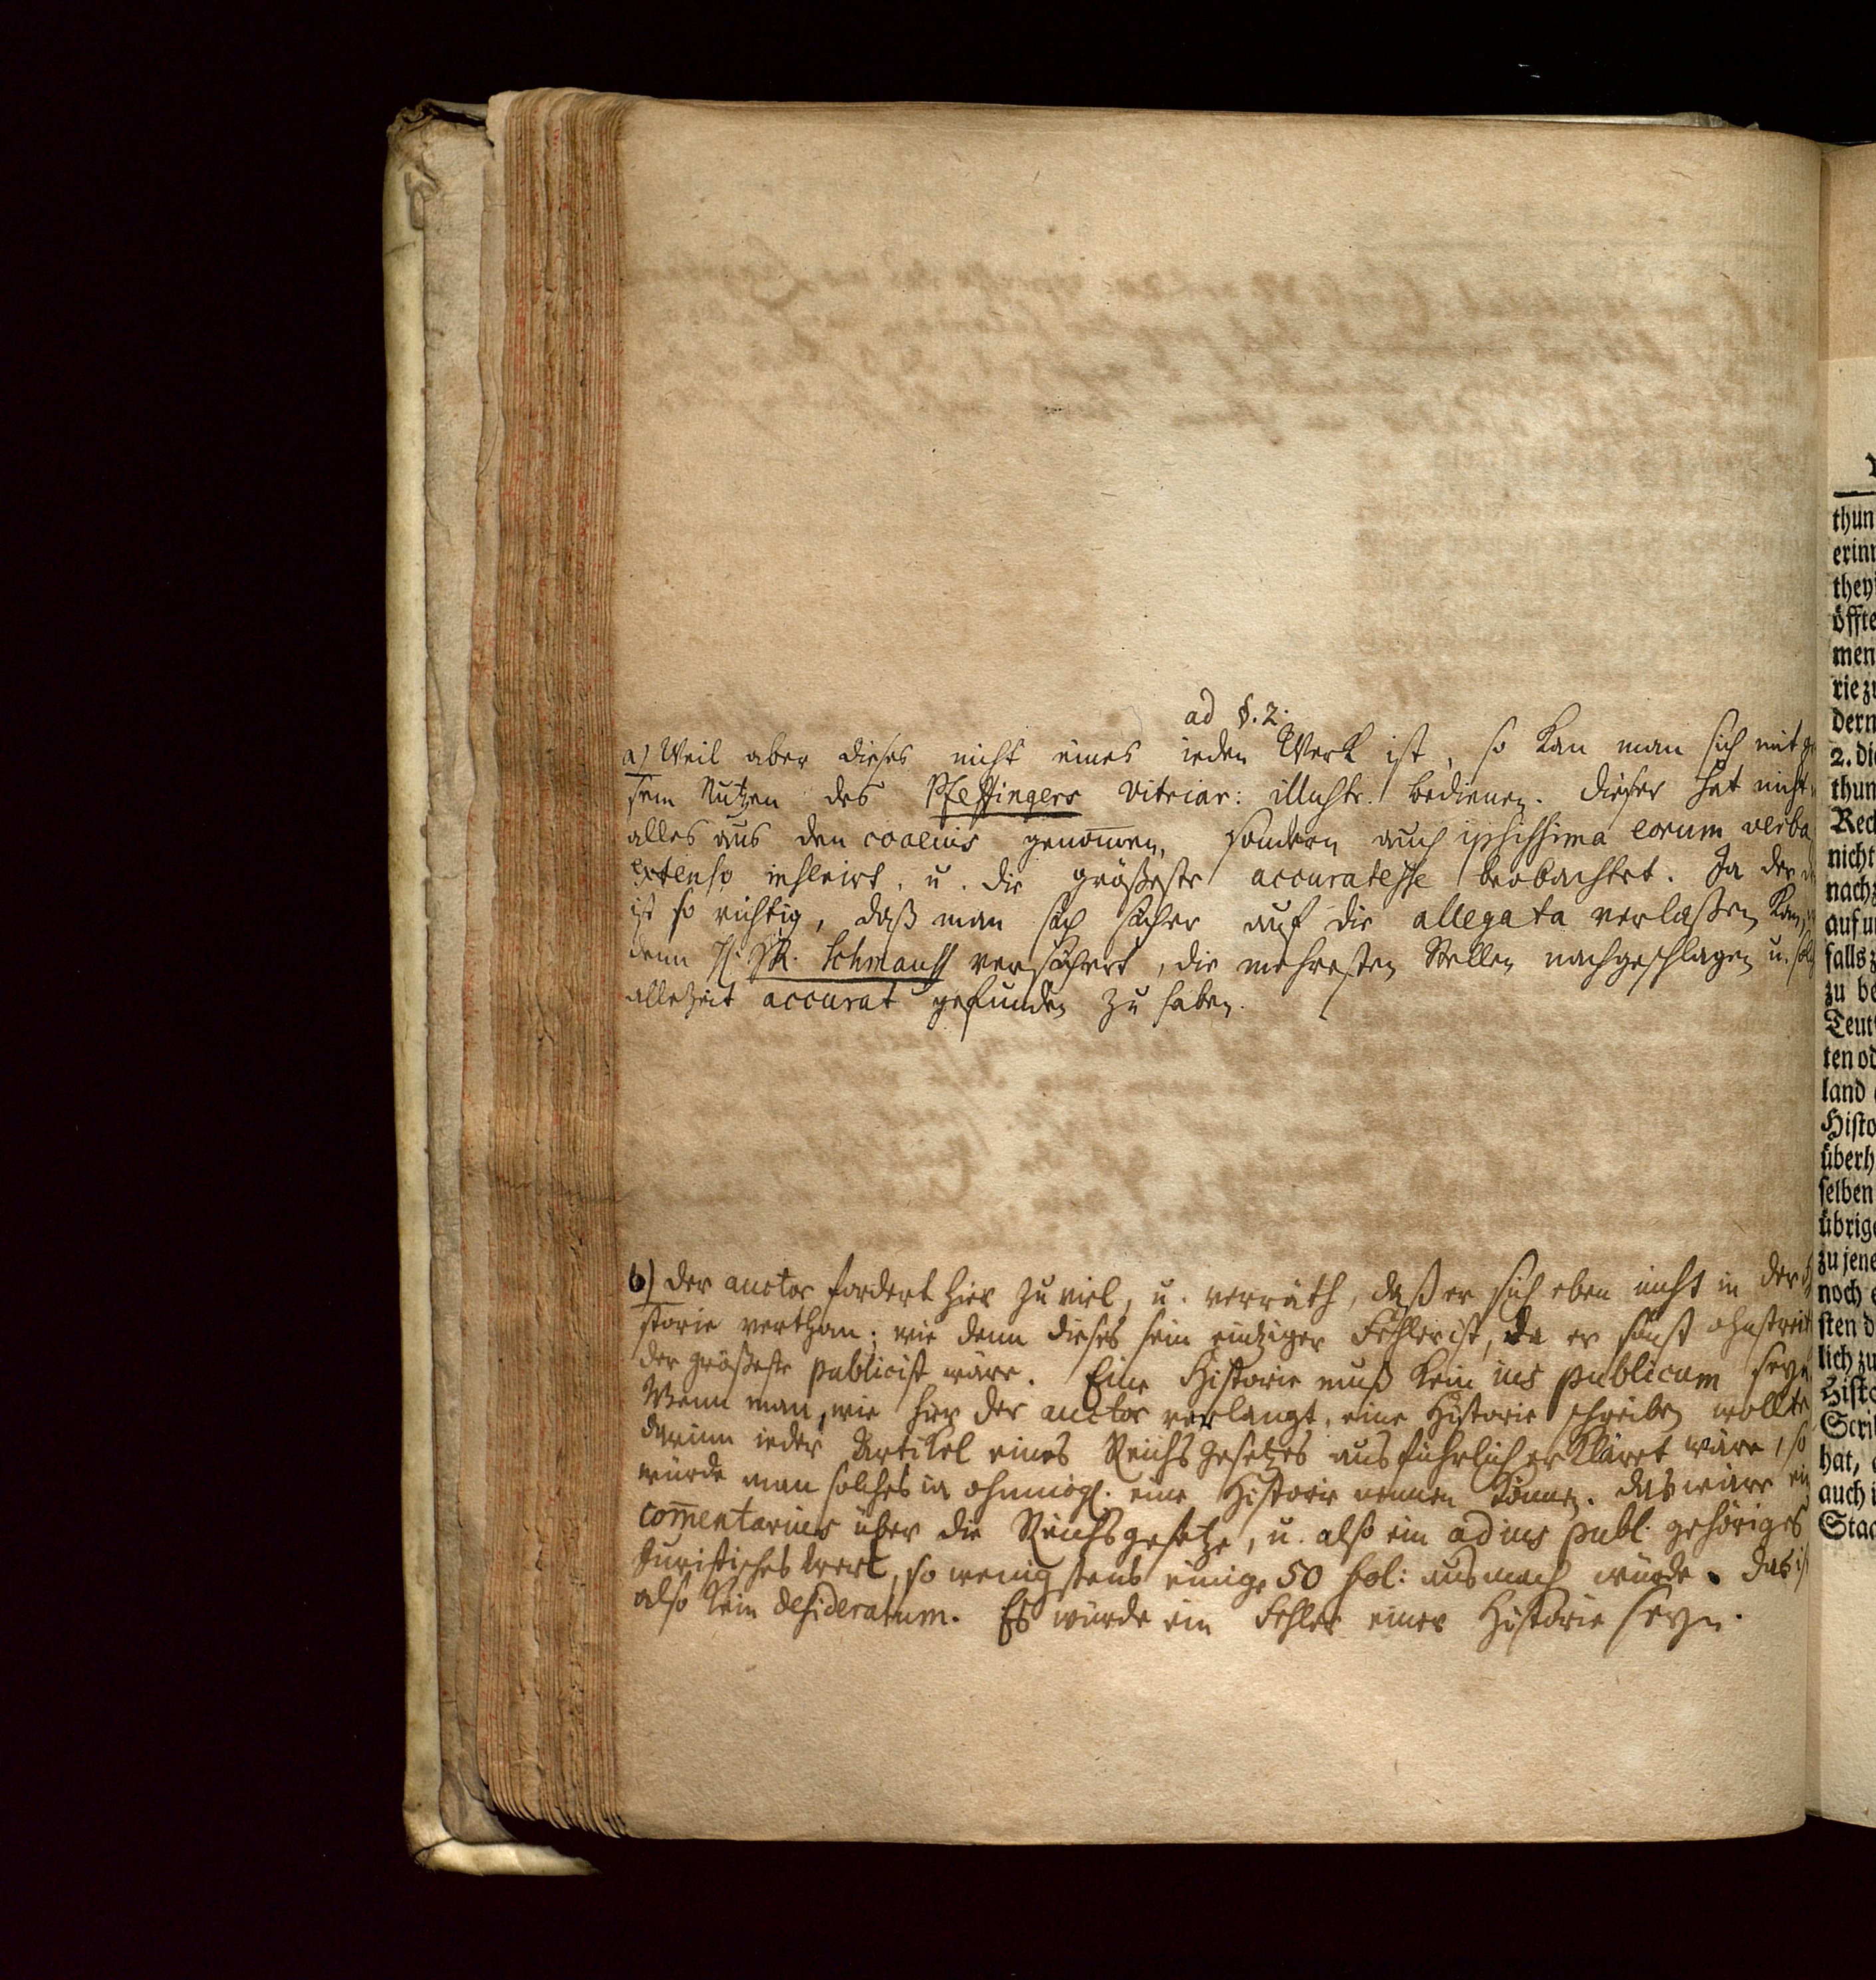 ad §. 2.
a) Weil aber dieses nicht eines ieden Werk ist, so kan man sich mit
sem Nutzen des Pfeffingers Vitriar: illustr. bedienen. Dieser hat nicht
alles aus den genom̄en, sondern auch ipsissima eorum verba
extenso inserirt, u. die größeste accuratesse beobachtet. Ja der
ist so richtig, daß man sich sicher auf die allegata verlaßen kan,
denn H. HR. Schmauß versichert, die mehresten Stellen nachgeschlagen u.
allezeit accurat gefunden zu haben.
b) Der auctor fordert hier zu viel, u. verräth, daß er sich eben nicht in der
storie verthan; wie denn dieses sein eintziger Fehler ist, da er sonst ohnstreit
der größeste publicist wäre. Eine Historie muß kein ius publicum seyn
Wenn man, wie hier der auctor verlangt, eine Historie schreiben wollte
darinn ieder Artikel eines Reichsgesetzes ausführlich erkläret wäre, so
würde man solches ia ohnmögl. eine Historie nennen können. Das wäre ein
com̄entarius über die Reichsgesetze, u. also ein ad ius publ. gehöriges
Juristisches Werk, so wenigstens einige 50 fol: ausmach würde. Das ist
also kein desideratum. Es würde ein Fehler einer Historie seyn.
thun
erinn
they
öffte
men
rie zu
dern
2. di
thun
Rec
nicht
nach
auf u
falls
zu be
Teut
ten od
land
Histo
überh
selben
übrig
zu jene
noch
sten d
lich zu
Histo
Scri
hat,
auch i
Staa